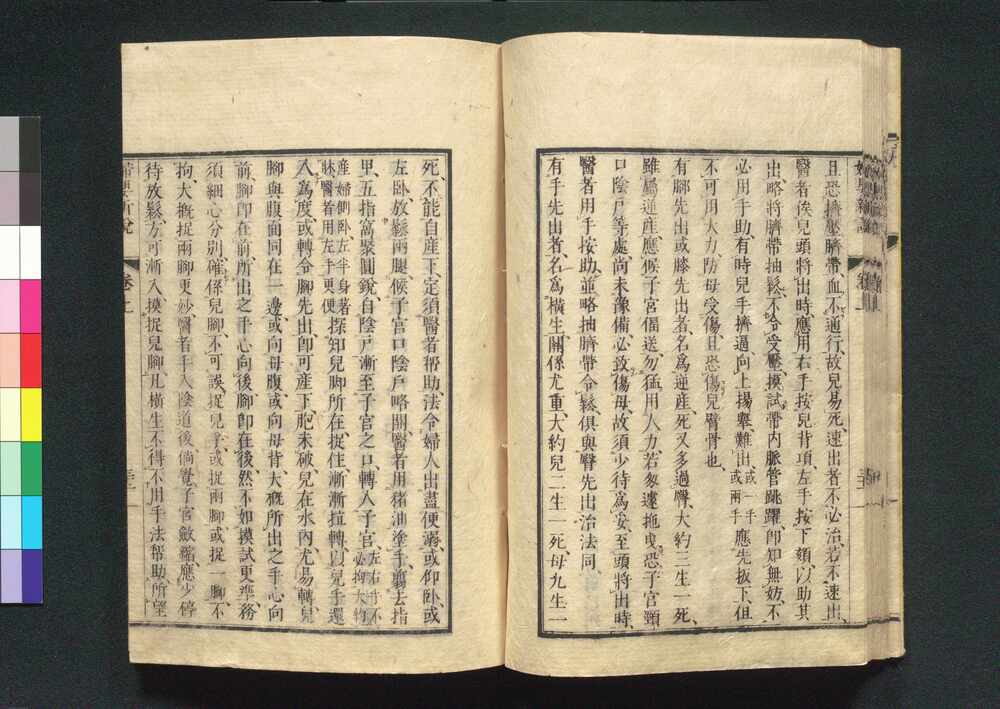 且恐擠壓臍帶、血不通行、故兒易死、速出者不必治、若不速出、
醫者俟兒頭將出時、應用右手按兒背項、左手按下頦、以助其
出、略將臍帶抽鬆、不令受壓、摸試帶內脈管跳躍、卽知無妨、不
必用手助、有時兒手擠逼向上揚舉、難出、或一手或兩手應先扳下、但
不可用大力、防母受傷、且恐傷兒臂骨也、
有腳先出或膝先出者、名爲逆產、死又多過臀、大約三生一死、
雖屬逆產、應候子宮偪送、勿猛用人力、若匆遽拖曳、恐子宮頸
口陰戶等處、尚未豫備、必致傷母、故須少待爲妥、至頭將出時、
醫者用手按助、並略抽臍帶令鬆、俱與臀先出治法同、
有手先出者、名爲橫生、關係尤重、大約兒二生一死、母九生一
死、不能自產下、定須醫者帮助、法令婦人出盡便溺、或仰臥或
左臥、放鬆兩腿、候子宮口陰戶略開、醫者用豬油塗手、剪去指
甲、五指富聚圓銳、自陰戶漸至子宮之口、轉入子宮、左右手不必拘、大約
產婦側臥、左半身著牀、醫者用左手更便探知兒腳所在、捉住漸漸拉轉、以兒手還
入爲度、或轉令腳先出、卽可產下、胞未破、兒在水內、尤易轉、兒
腳與腹面同在一邊、或向母腹、或向母背、大槪所出之手心向
前、腳卽在前、所出之手心向後、腳卽在後、然不如摸試更準、務
須細心分別、確係兒腳、不可誤捉兒手、或捉兩腳、或捉一腳、不
拘、大槪捉兩腳更妙、醫者手入陰道後、倘覺子宮斂縮、應少停
待放鬆、方可漸入摸捉兒腳、凡橫生不得不用手法帮助、所望
婦嬰新說 卷上